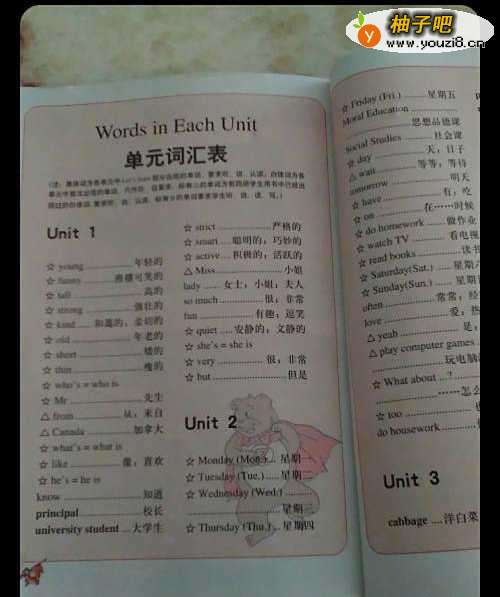 柚子吧
www.youzi8.cn
Words in Each Unit
单元词汇表
Unit 1
☆ young ............ 年轻的
☆ funny ........ 滑稽可笑的
☆ tall ................ 高的
☆ strong ............ 强壮的
☆ kind ..... 和蔼的；亲切的
☆ old ................ 年老的
☆ short ............... 矮的
☆ thin ................ 瘦的
☆ who's = who is
☆ Mr ................ 先生
△ from .......... 从；来自
△ Canada .......... 加拿大
☆ what's = what is
☆ like ........... 像；喜欢
☆ he's = he is
know ................ 知道
principal ............ 校长
university student ... 大学生
☆ strict ............ 严格的
☆ smart .... 聪明的；巧妙的
☆ active .... 积极的；活跃的
△ Miss ............... 小姐
lady ..... 女士；小姐；夫人
so much ......... 很；非常
fun ............ 有趣；逗笑
☆ quiet ..... 安静的；文静的
☆ she's = she is
☆ very ........... 很；非常
☆ but ................ 但是
Unit 2
☆ Monday (Mon.) ... 星期一
☆ Tuesday (Tue.) ..... 星期二
☆ Wednesday (Wed.) .......
................ 星期三
☆ Thursday (Thu.) ... 星期四
☆ Friday (Fri.) ........ 星期五
Moral Education ............
............ 思想品德课
Social Studies ........ 社会课
☆ day ............ 天；日子
△ wait ............ 等；等待
tomorrow ............ 明天
☆ have ............ 有；吃
☆ on ........ 在……时候
☆ do homework ...... 做作业
☆ watch TV ......... 看电视
☆ read books ........ 读书
☆ Saturday(Sat.) ...... 星期六
☆ Sunday(Sun.) ...... 星期
often ............ 常常；经
love ............ 爱；热
△ yeah ............ 是；
△ play computer games
............ 玩电脑
☆ What about ...?
............ ……怎么
☆ too ............ 也
do housework ........
Unit 3
cabbage .... 洋白菜